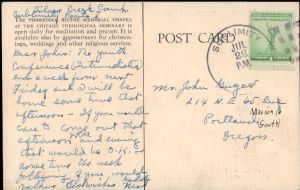 Silver Creek Camp
THE THORNDIKE HILTON MEMORIAL CHAPEL
AT THE CHICAGO THEOLOGICAL SEMINARY is
open daily for meditation and prayer. It is
available also by appointment for christen-
ings, weddings and other religious services.
Dear John: The youth
Conference (Intermediate)
end a week from next
Friday and I will be
home some time that
afternoon - If you would
care to come out that
P.M.
afternoon and evening
that would be O.K. or
some time the week
following if you would
rather.
POST CARD
JUL
Mr. John
214 N.E. 65 Ave
Portland
South
Oregon.